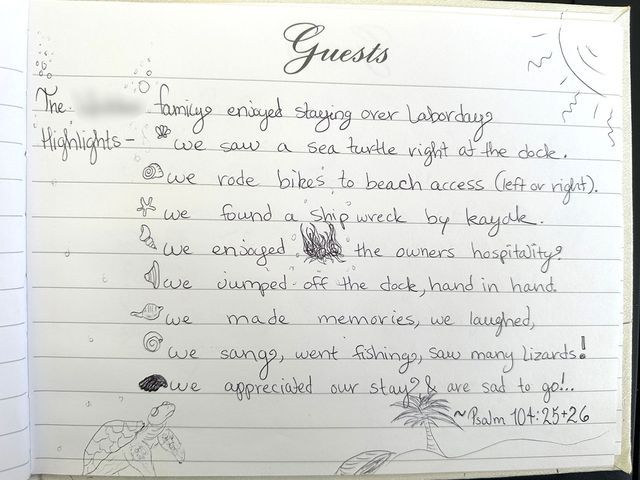 Guests
The family enjoyed staying over Laborday
Highlights - we saw a sea turtle right at the dock.
we rode bikes to beach access (left or right).
we found a shipwreck by kayak.
we enjoyed the owners hospitality.
we jumped off the dock, hand in hand.
we made memories, we laughed,
we sang, went fishing, saw many lizards!
we appreciated our stay & are sad to go!..
~Psalm 104:25+26